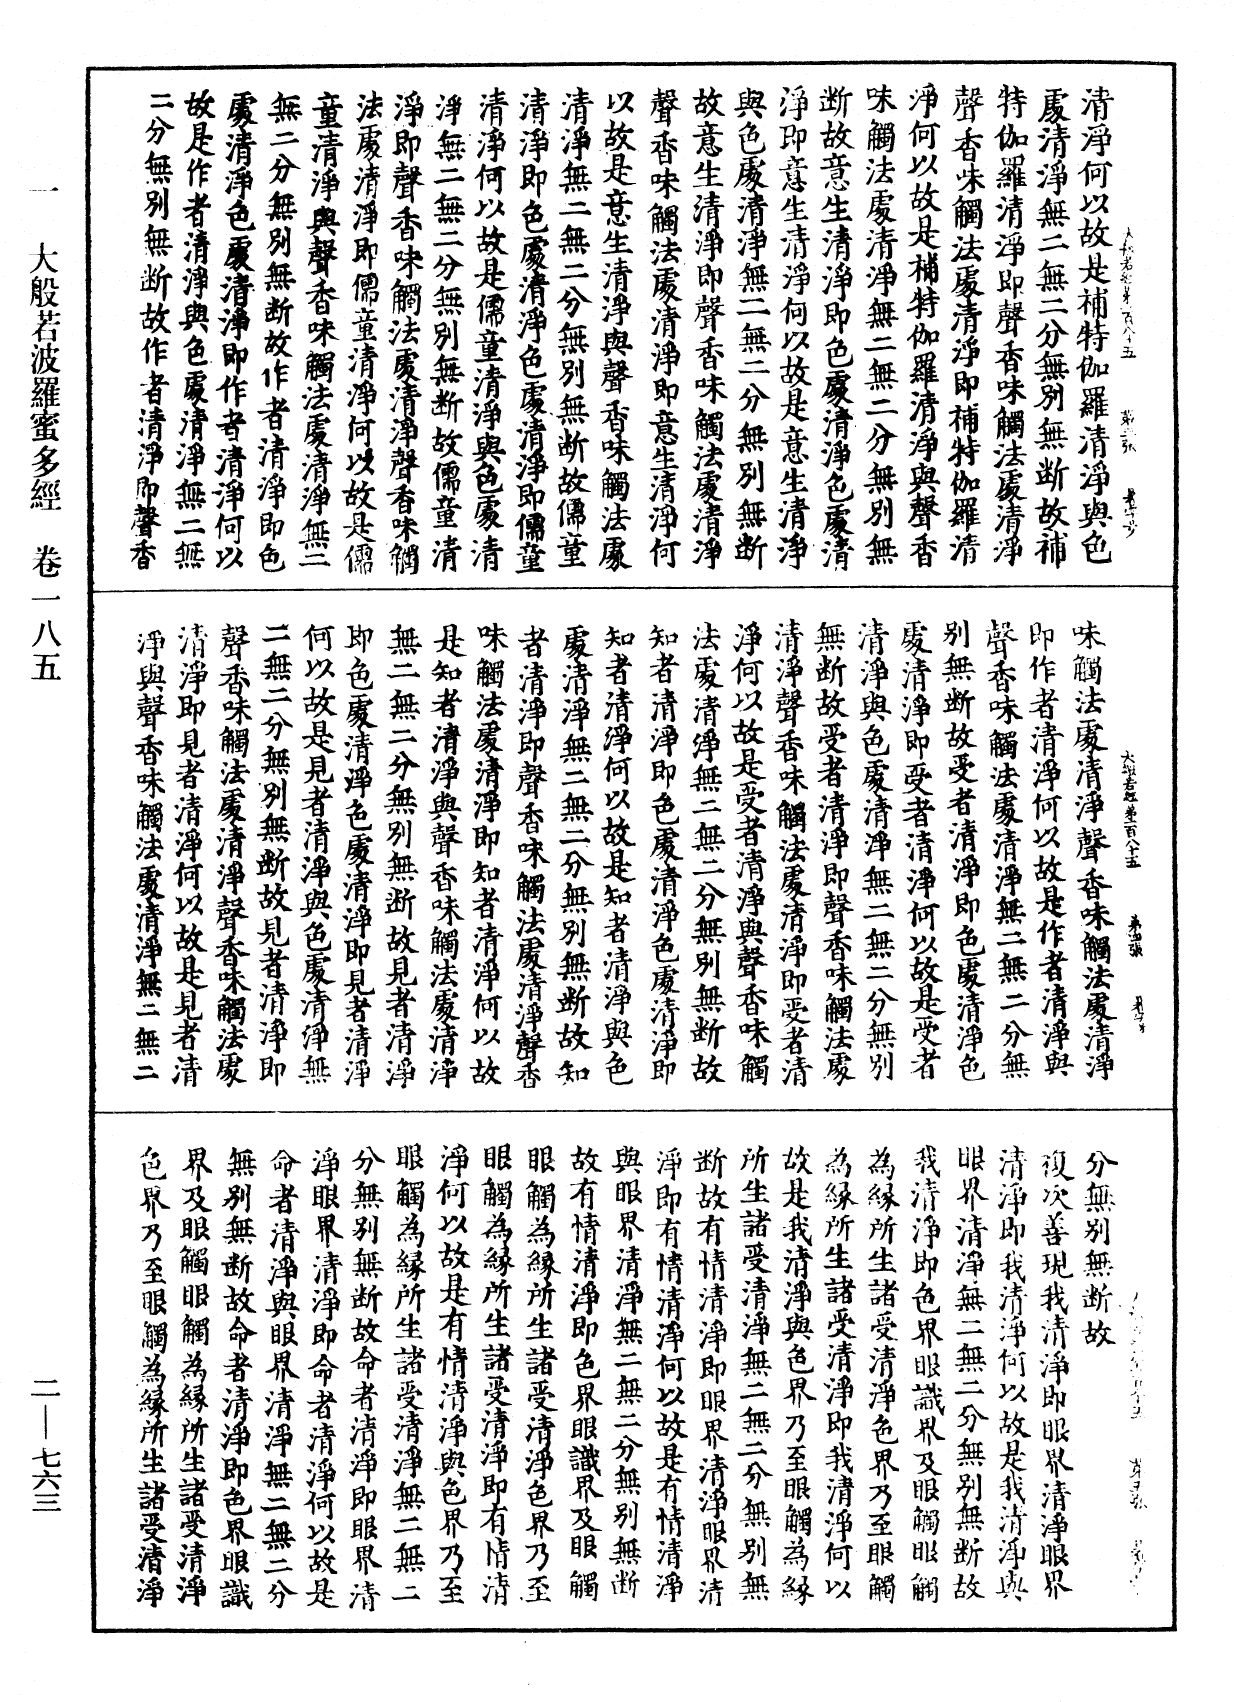 清淨何以故是補特伽羅清淨與色
處清淨無二無二分無別無断故補
特伽羅清淨即聲香味觸法處清淨
聲香味觸法處清淨即補特伽羅清
淨何以故是補特伽羅清淨與聲香
味觸法處清淨無二無二分無別無
断故意生清淨即色處清淨色處清
淨即意生清淨何以故是意生清淨
與色處清淨無二無二分無別無断
故意生清淨即聲香味觸法處清淨
聲香味觸法處清淨即意生清淨何
以故是意生清淨與聲香味觸法處
清淨無二無二分無別無断故儒童
清淨即色處清淨色處清淨即儒童
清淨何以故是儒童清淨與色處清
淨無二無二分無別無断故儒童清
淨即聲香味觸法處清淨聲香味觸
法處清淨即儒童清淨何以故是儒
童清淨與聲香味觸法處清淨無二
無二分無別無断故作者清淨即色
處清淨色處清淨即作者清淨何以
故是作者清淨與色處清淨無二無
二分無別無断故作者清淨即聲香
大般若經第一百八十五
味觸法處清淨聲香味觸法處清淨
即作者清淨何以故是作者清淨與
聲香味觸法處清淨無二無二分無
別無断故受者清淨即色處清淨色
處清淨即受者清淨何以故是受者
清淨與色處清淨無二無二分無別
無断故受者清淨即聲香味觸法處
清淨聲香味觸法處清淨即受者清
淨何以故是受者清淨與聲香味觸
法處清淨無二無二分無別無断故
知者清淨即色處清淨色處清淨即
知者清淨何以故是知者清淨與色
處清淨無二無二分無別無断故知
者清淨即聲香味觸法處清淨聲香
味觸法處清淨即知者清淨何以故
是知者清淨與聲香味觸法處清淨
無二無二分無別無断故見者清淨
即色處清淨色處清淨即見者清淨
何以故是見者清淨與色處清淨無
二無二分無別無断故見者清淨即
聲香味觸法處清淨聲香味觸法處
清淨即見者清淨何以故是見者清
淨與聲香味觸法處清淨無二無二
分無別無断故
復次善現我清淨即眼界清淨眼界
清淨即我清淨何以故是我清淨與
眼界清淨無二無二分無別無断故
我清淨即色界眼識界及眼觸眼觸
為緣所生諸受清淨色界乃至眼觸
為緣所生諸受清淨即我清淨何以
故是我清淨與色界乃至眼觸為緣
所生諸受清淨無二無二分無別無
断故有情清淨即眼界清淨眼界清
淨即有情清淨何以故是有情清淨
與眼界清淨無二無二分無別無断
故有情清淨即色界眼識界及眼觸
眼觸為緣所生諸受清淨色界乃至
眼觸為緣所生諸受清淨即有情清
淨何以故是有情清淨與色界乃至
眼觸為緣所生諸受清淨無二無二
分無別無断故命者清淨即眼界清
淨眼界清淨即命者清淨何以故是
命者清淨與眼界清淨無二無二分
無別無断故命者清淨即色界眼識
界及眼觸眼觸為緣所生諸受清淨
色界乃至眼觸為緣所生諸受清淨
一 大般若波羅蜜多經 卷一八五
二—七六三